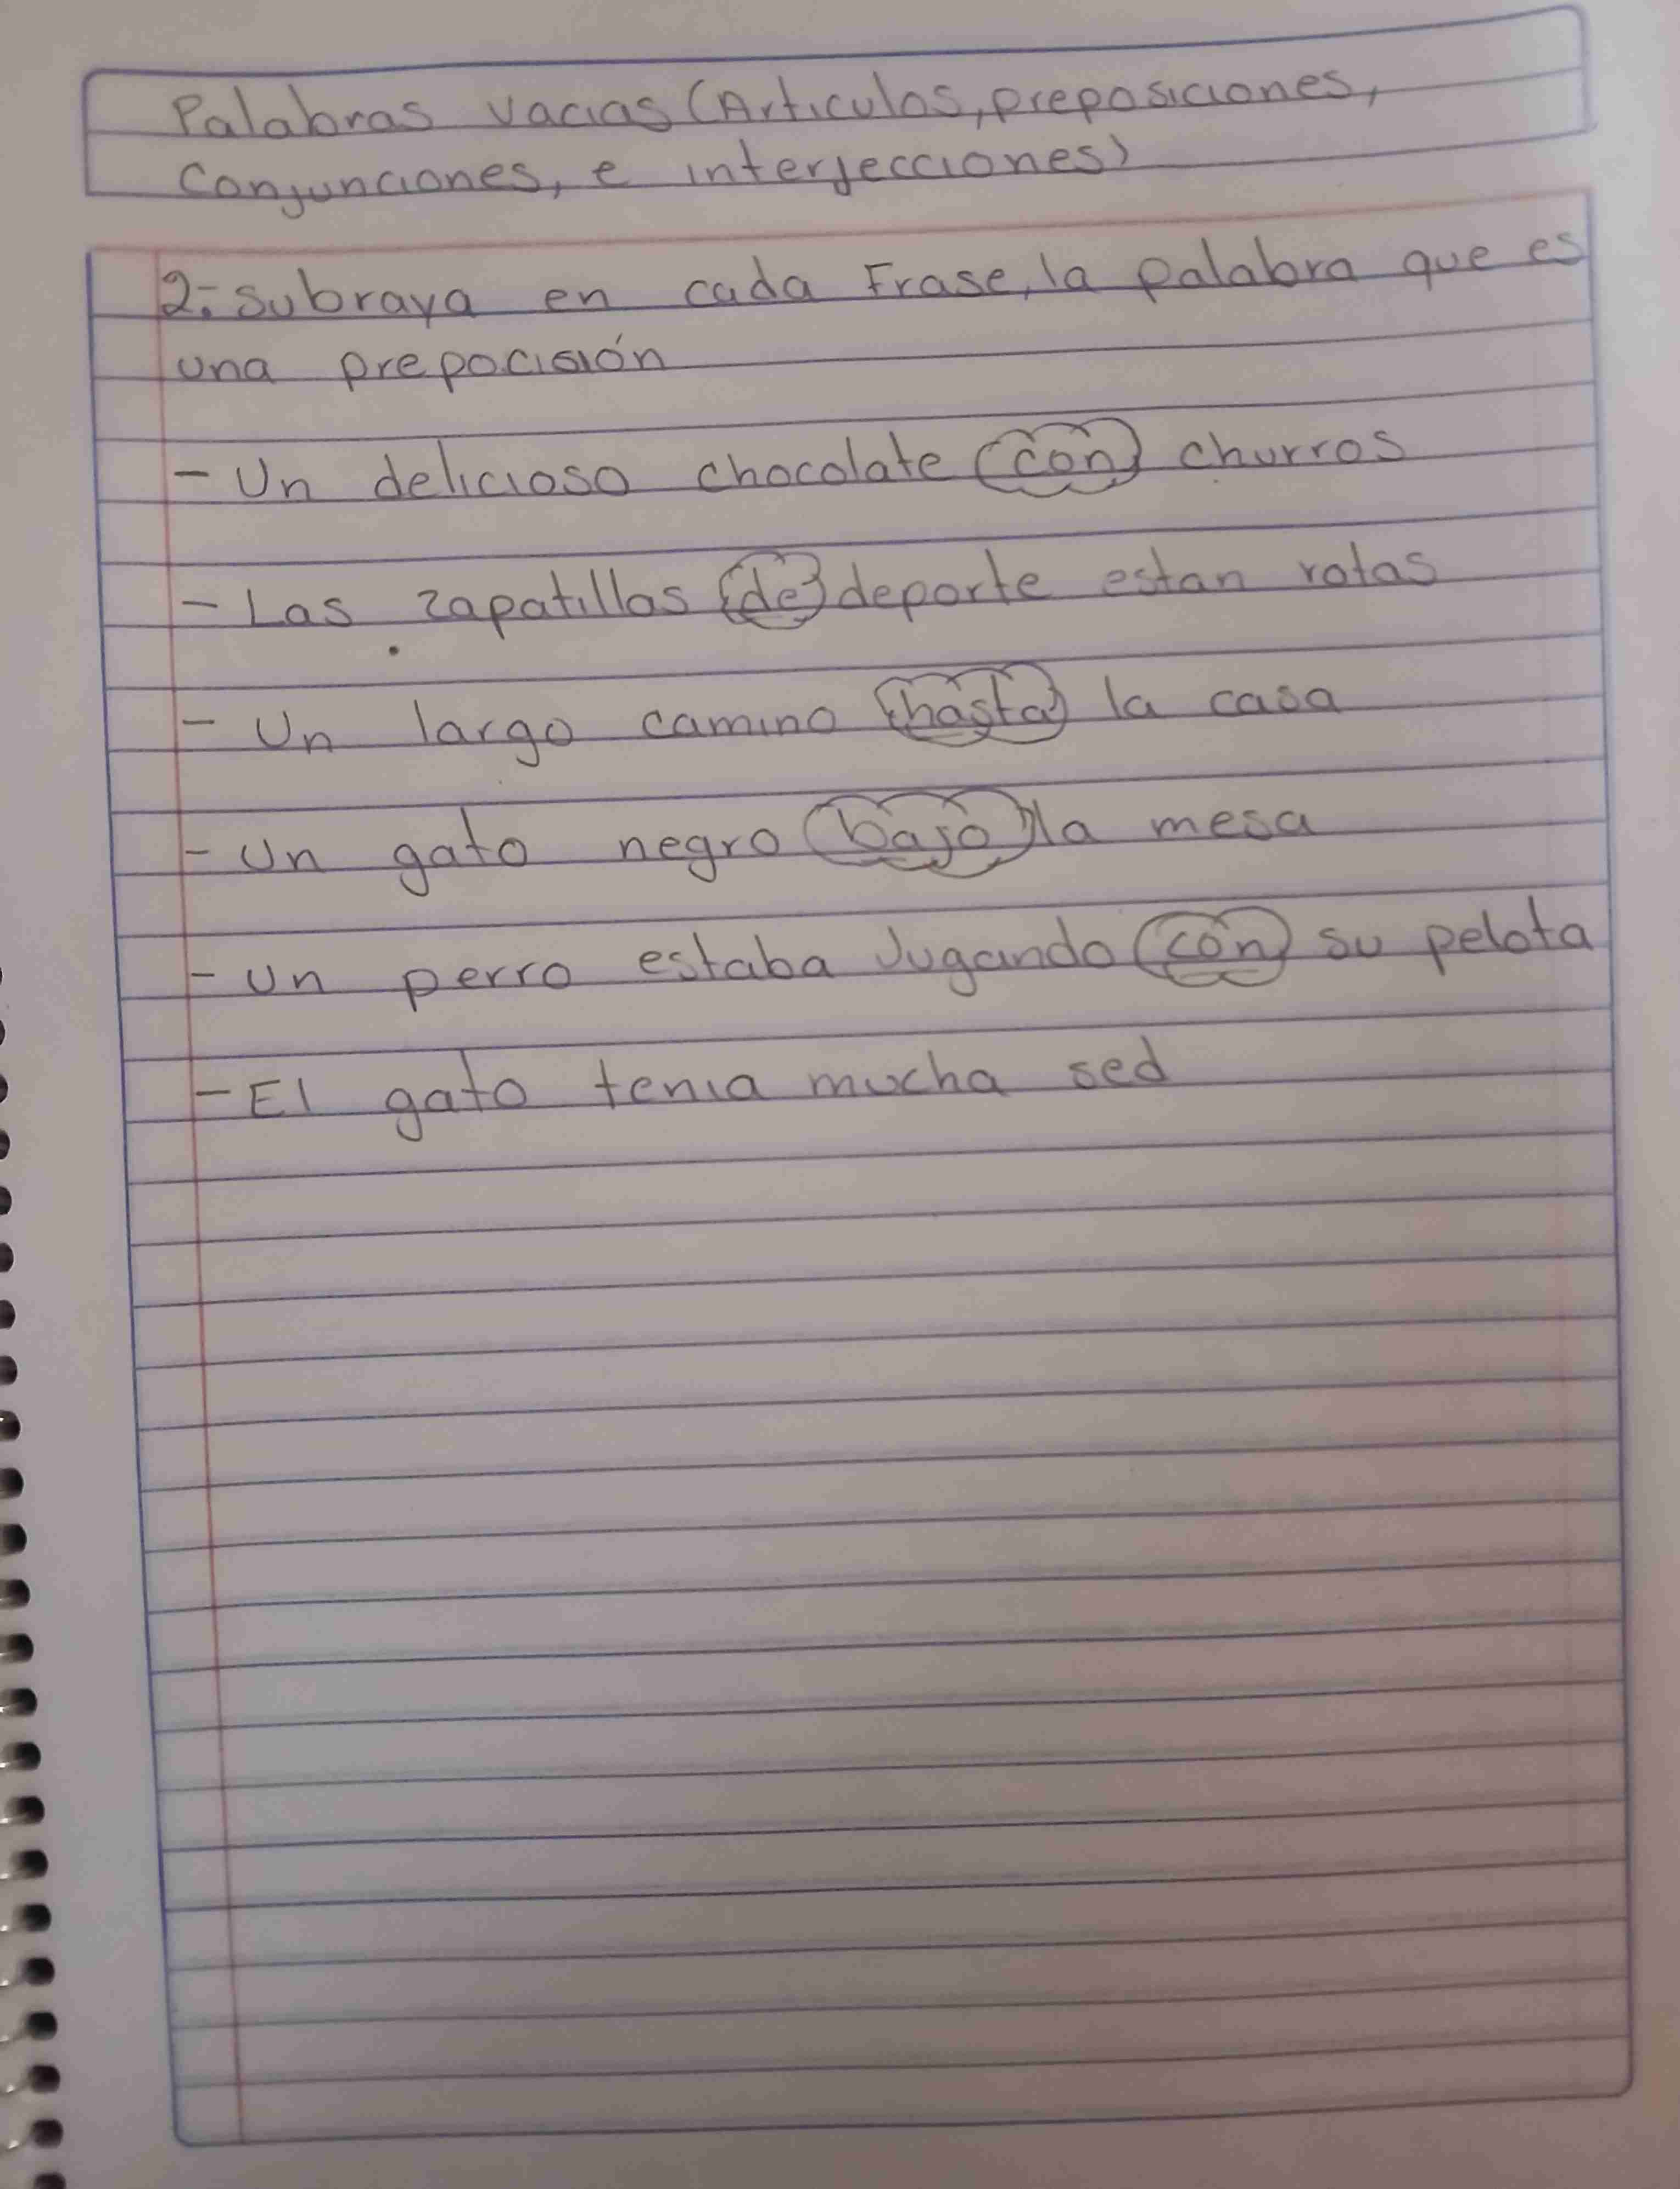 Palabras vacias (Articulos, preposiciones,
Conjunciones, e interjecciones)
2.- subraya en cada Frase, la palabra que es
una prepocisión
- Un delicioso chocolate con churros
- Las zapatillas de deporte estan rotas
- Un largo camino hasta la casa
- Un gato negro bajo la mesa
- Un perro estaba Jugando con su pelota
- El gato tenia mucha sed